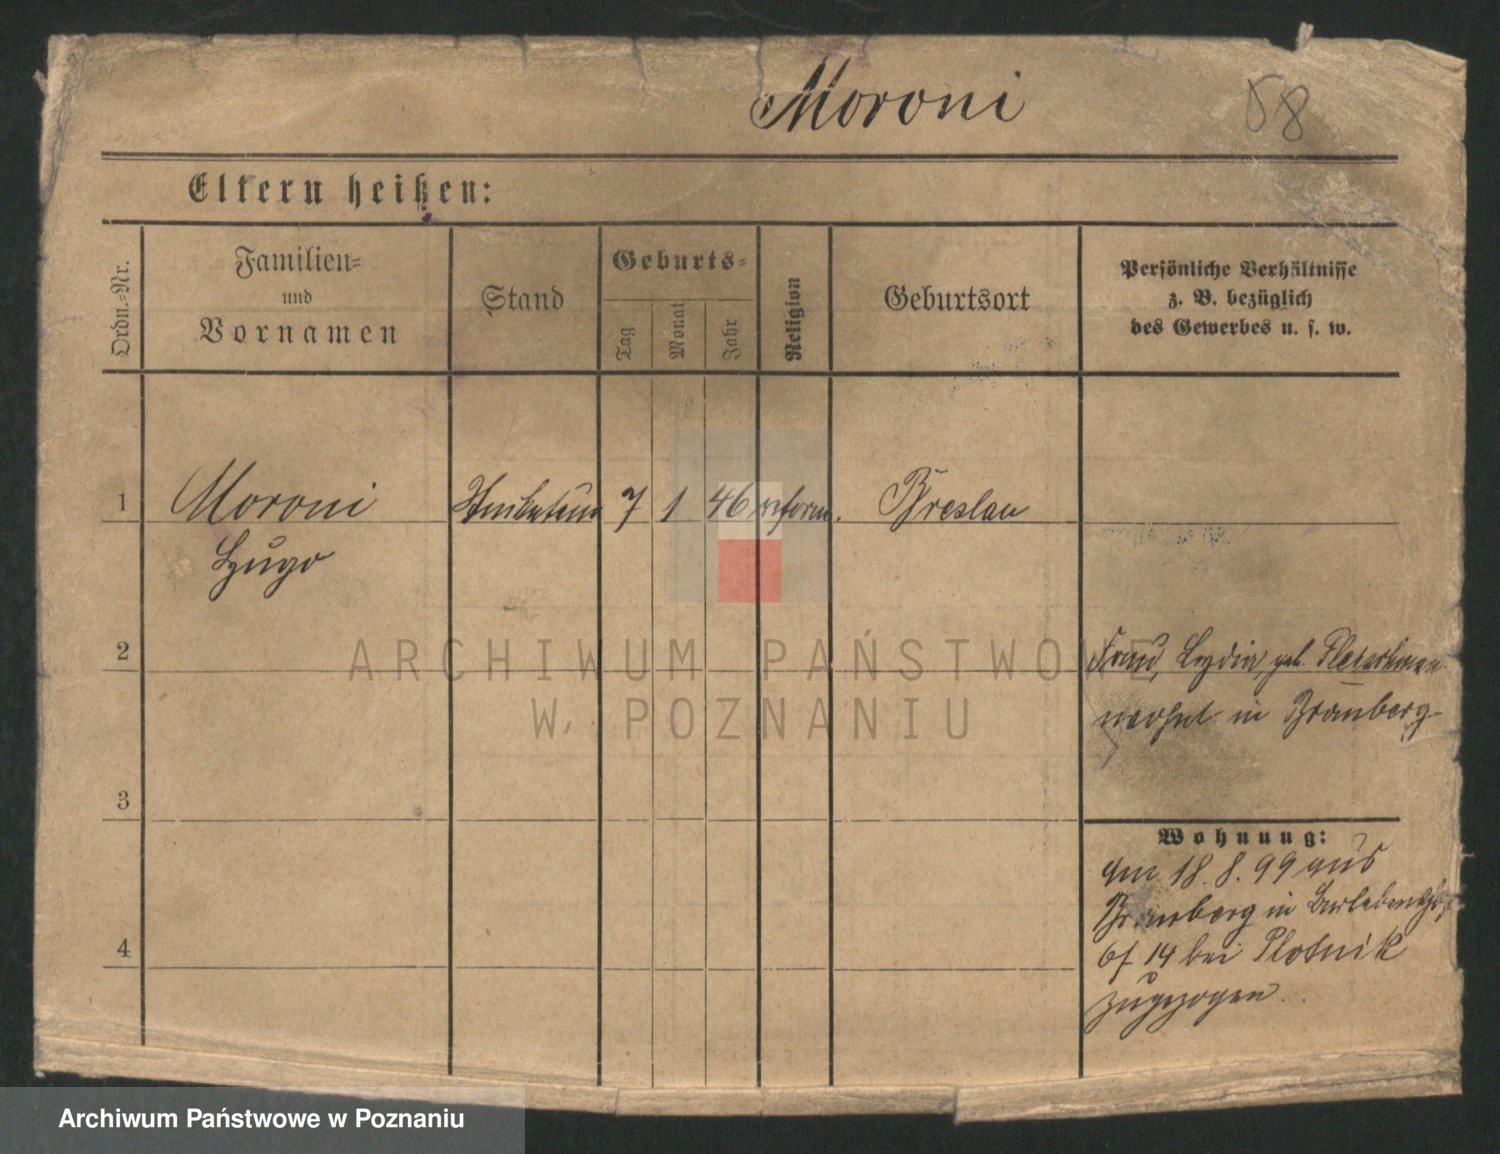 Moroni 58
Eltern heißen:
Ordn.=Nr.
Familien=
und
Vornamen
Stand
Geburts=
Tag
Monat
Jahr
Religion
Geburtsort
Persönliche Verhältnisse
z. B. bezüglich
des Gewerbes u. s. w.
1 Moroni 7 1 46 reform. Breslau
Hugo
2
Frau, Lydia, geb.
wohnt in Bromberg
3
Wohnung:
am 18. 8. 99 aus
Bromberg in
14 bei Plotnik
zugezogen.
4
ARCHIWUM PAŃSTWOWE
W POZNANIU
Archiwum Państwowe w Poznaniu